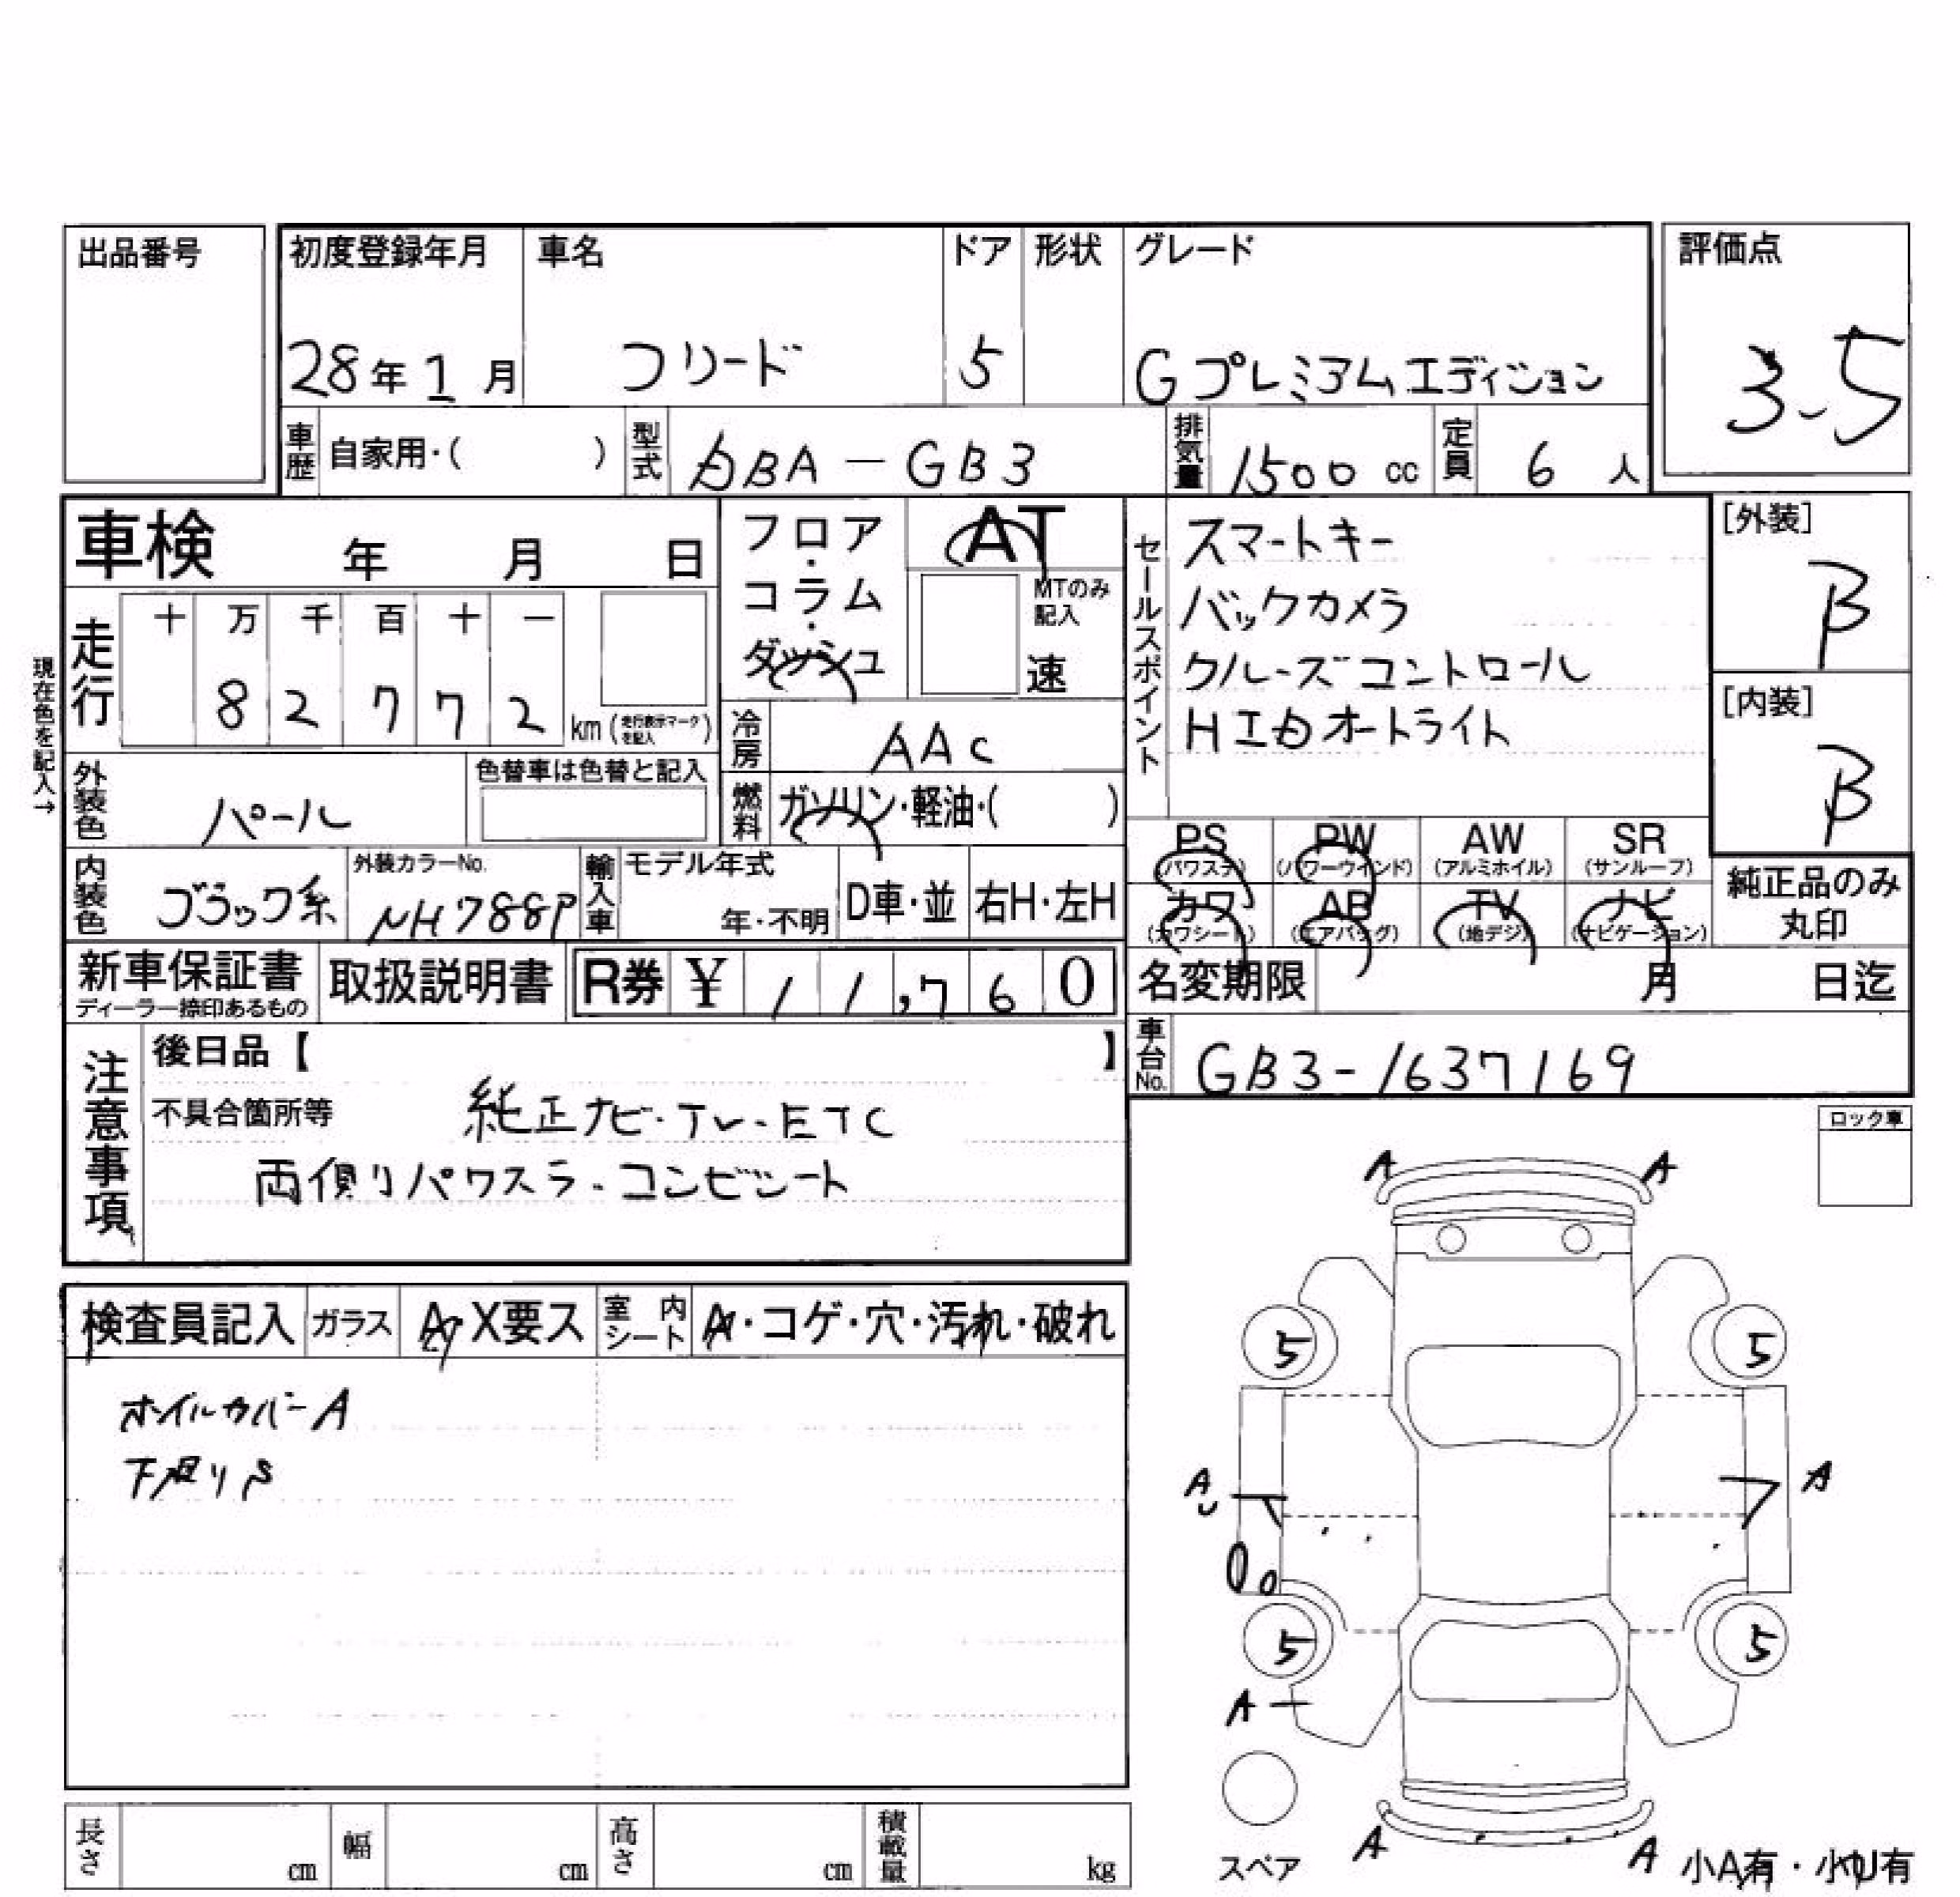 出品番号
初度登録年月 車名 ドア 形状 グレード 評価点
28年1月 フリード 5 Gプレミアムエディション 3.5
車歴 自家用・( ) 型式 DBA-GB3 排気量 1500 cc 定員 6 人
車検 年 月 日
フロア・コラム・ダッシュ AT
MTのみ記入 速
現在色を記入→
走行 十 万 千 百 十 一
8 2 7 7 2 km (走行表示マークを記入)
冷房 AAC
外装色 パール 色替車は色替と記入
燃料 ガソリン・軽油・( )
内装色 ブラック系 外装カラーNo. NH788P 輸入車 モデル年式 年・不明 D車・並 右H・左H
セールスポイント
スマートキー
バックカメラ
クルーズコントロール
HIDオートライト
[外装] B
[内装] B
PS (パワステ) PW (パワーウインド) AW (アルミホイル) SR (サンルーフ)
カワ (カワシート) AB (エアバッグ) TV (地デジ) ナビ (ナビゲーション)
純正品のみ丸印
新車保証書 ディーラー捺印あるもの 取扱説明書 R券 ¥ 11,760
名変期限 月 日迄
車台No. GB3-1637169
注意事項
後日品【 】
不具合箇所等 純正ナビ・TV・ETC
両側パワスラ・コンビシート
ロック車
検査員記入 ガラス A・X要ス 室内シート A・コゲ・穴・汚れ・破れ
ホイルカバーA
下廻りS
A A
5 5
A U A
5 5
A
A A
スペア
小A有・小U有
長さ cm 幅 cm 高さ cm 積載量 kg